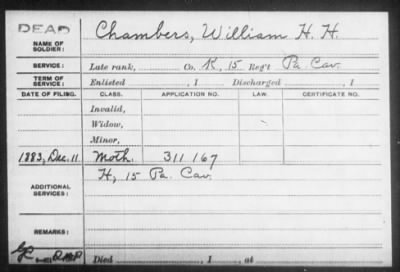 DEAD
NAME OF SOLDIER: Chambers, William H. H.
SERVICE: Late rank, Co. K, 15 Reg't Pa. Cav.
TERM OF SERVICE: Enlisted , 1 Discharged , 1
DATE OF FILING. CLASS. APPLICATION NO. LAW. CERTIFICATE NO.
Invalid,
Widow,
Minor,
1883, Dec. 11 Moth. 311 167
ADDITIONAL SERVICES: H, 15 Pa. Cav.
REMARKS:
Died , 1 , at